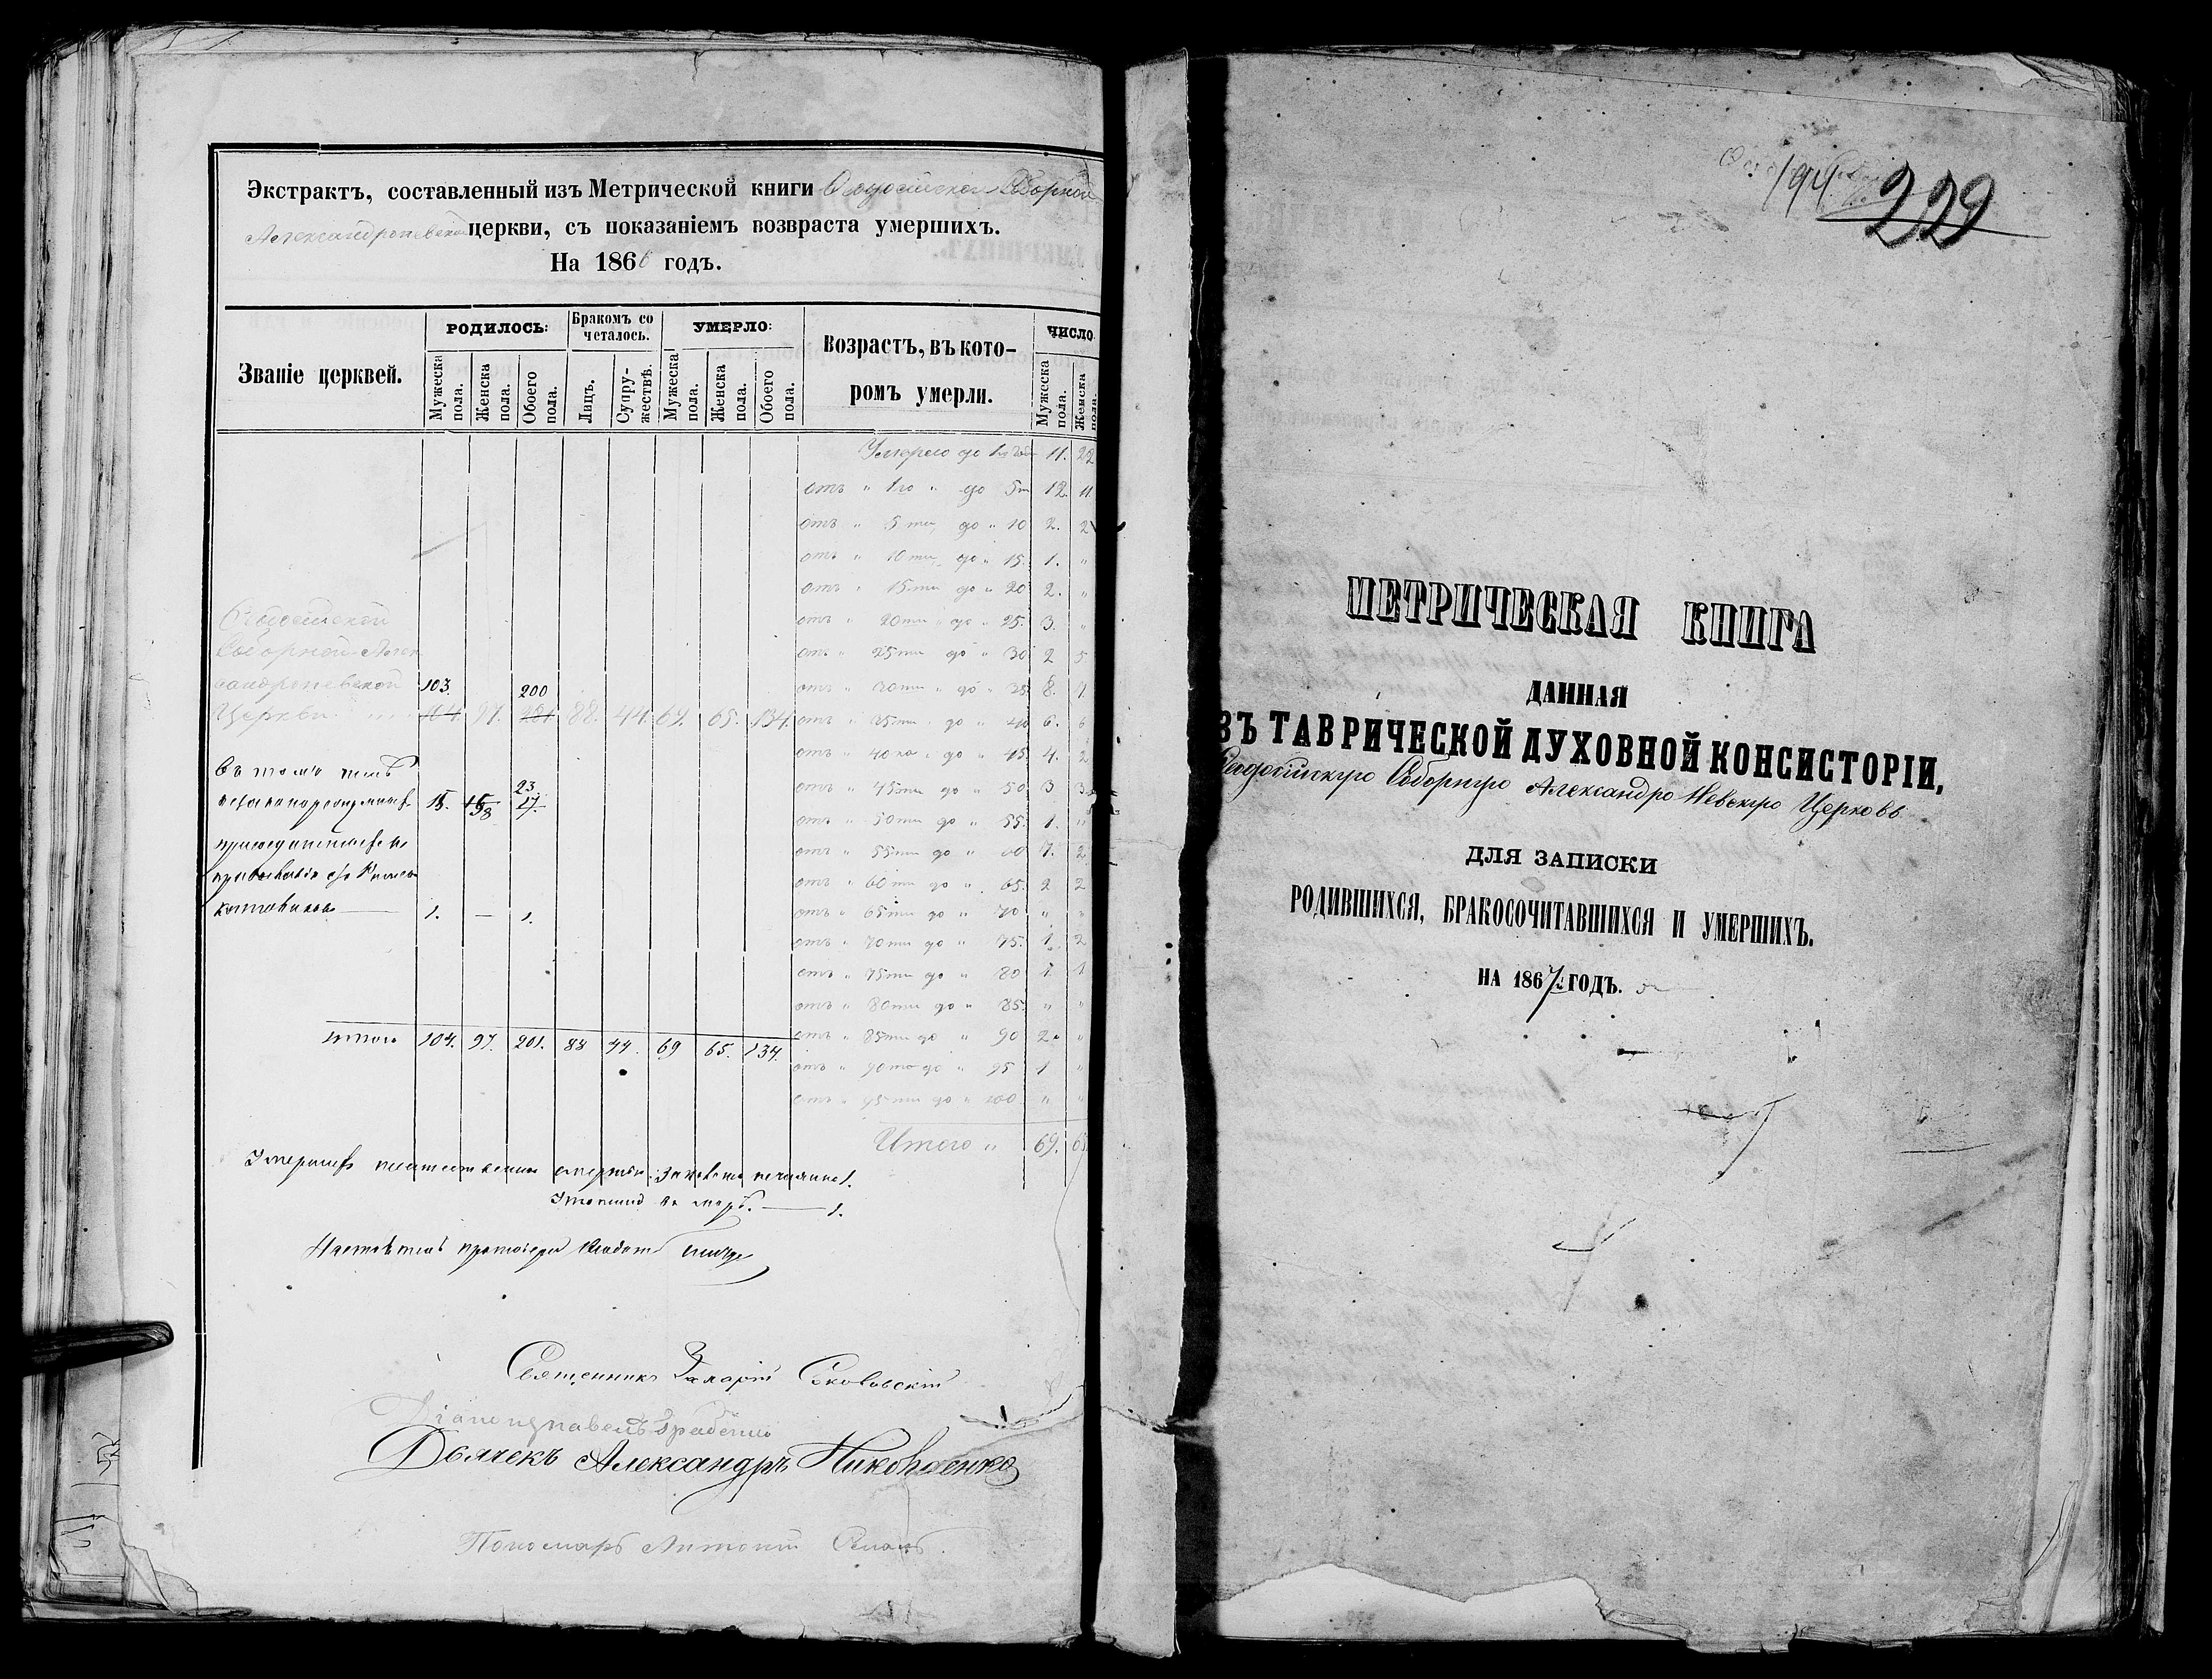 Экстрактъ, составленный изъ Метрической книги Ѳеодосійской Соборной
Александроневской церкви, съ показаніемъ возвраста умершихъ.
На 1866 годъ.
Званіе церквей.
РОДИЛОСЬ:
Бракомъ со
четалось.
УМЕРЛО:
Возрастъ, въ кото-
ромъ умерли.
ЧИСЛО.
Мужеска пола.
Женска пола.
Обоего пола.
Лицъ.
Супру-
жествъ.
Мужеска пола.
Женска пола.
Обоего пола.
Мужеска пола.
Женска пола.
Умерло до 1го года 11. 22
отъ " 1го " до 5ти 12. 11.
отъ " 5ти до " 10 2. 2
отъ " 10ти до " 15. 1. "
отъ " 15ти до " 20 2. "
Ѳеодосійской отъ " 20ти " до " 25. 3. "
Соборной Алек отъ " 25ти до " 30 2 5
сандроневской 103. 200 отъ " 30ти " до " 35. 8.
Церкви 104. 97. 201. 88. 44. 69. 65. 134. отъ " 35ти " до " 40 6. 6
отъ " 40ка " до " 45. 4. 2
Въ томъ числѣ
23.
незаконорожденныхъ 15. 17. отъ " 45ти до " 50 3 3
отъ " 50ти до " 55. 1. "
отъ " 55ти до " 60 7. 2
отъ " 60ти до " 65. 2 2
1. — 1. отъ " 65ти до " 70 " "
отъ " 70ти до " 75. 1. 2
отъ " 75ти до " 80 1. 1
отъ " 80ти до " 85. " "
итого 104. 97. 201. 88 44. 69 65. 134. отъ " 85ти до " 90 2. "
отъ " 90то до " 95 1 "
отъ " 95ти до " 100. " "
Итого " 69. 65
въ морѣ. — 1.
Священникъ Захарій Соковскій
Дьячекъ Александръ Никовленко
Пономарь Антоній
194
229
МЕТРИЧЕСКАЯ КНИГА
ДАННАЯ
ЗЪ ТАВРИЧЕСКОЙ ДУХОВНОЙ КОНСИСТОРІИ,
Ѳеодосійскую Соборную Александро Невскую Церковь
ДЛЯ ЗАПИСКИ
РОДИВШИХСЯ, БРАКОСОЧИТАВШИХСЯ И УМЕРШИХЪ.
НА 1867 ГОДЪ.